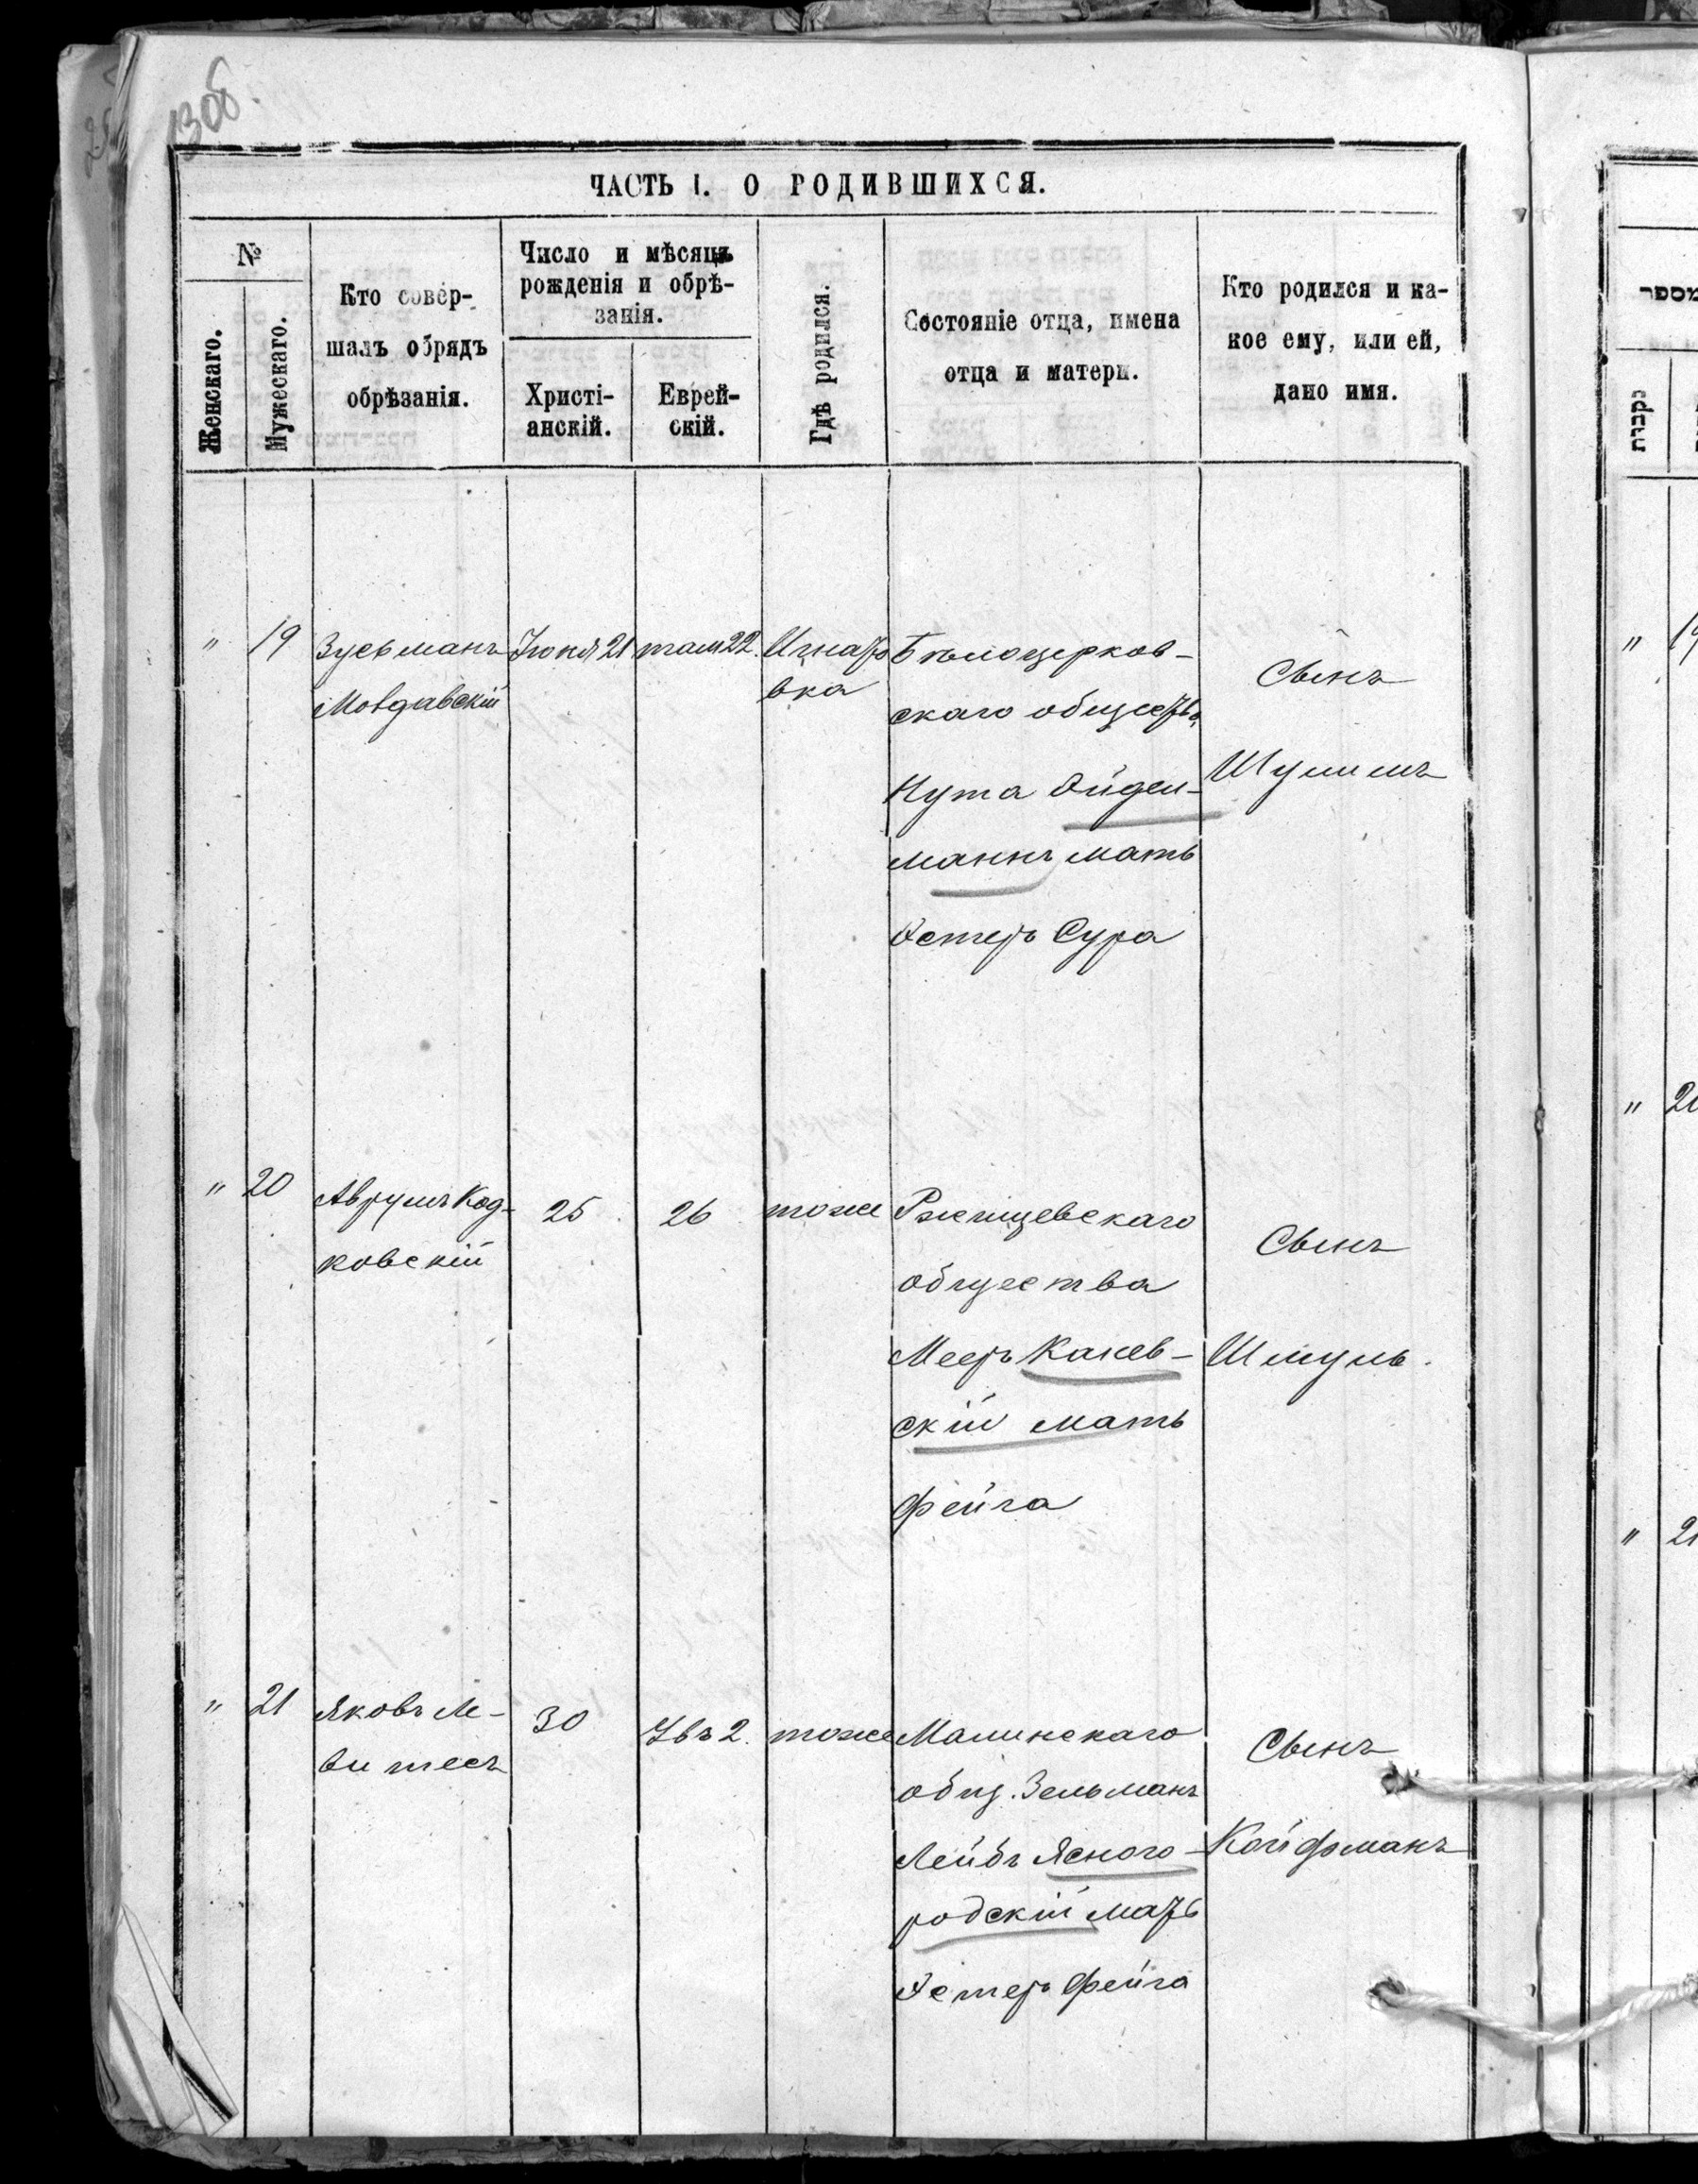 13 об.
ЧАСТЬ I. О РОДИВШИХСЯ.
№
Женскаго.
Мужескаго.
Кто совер-
шалъ обрядъ
обрѣзанія.
Число и мѣсяцъ
рожденія и обрѣ-
занія.
Христі-
анскій.
Еврей-
скій.
Гдѣ родился.
Состояніе отца, имена
отца и матери.
Кто родился и ка-
кое ему, или ей,
дано имя.
" 19 Зусьманъ Іюня 21 там 22. Игнато
вка
Бѣлоцерков-
скаго общества,
Нута Ойдель-
манъ мать
Эстеръ Сура
Сынъ
Шулимъ
" 20 Аврумъ Код-
ковскій
25 26 тоже
Ржищевскаго
общества
Мееръ Канев-
скій мать
Фейга
Сынъ
Шмуль.
" 21 Яковъ Ле-
витесъ
30 2. тоже
Малинскаго
общ. Зельманъ
Лейбъ Ясного-
родскій мать
Эстеръ Фейга
Сынъ
Койфманъ
מספר
נקבות
" 19
" 20
" 21